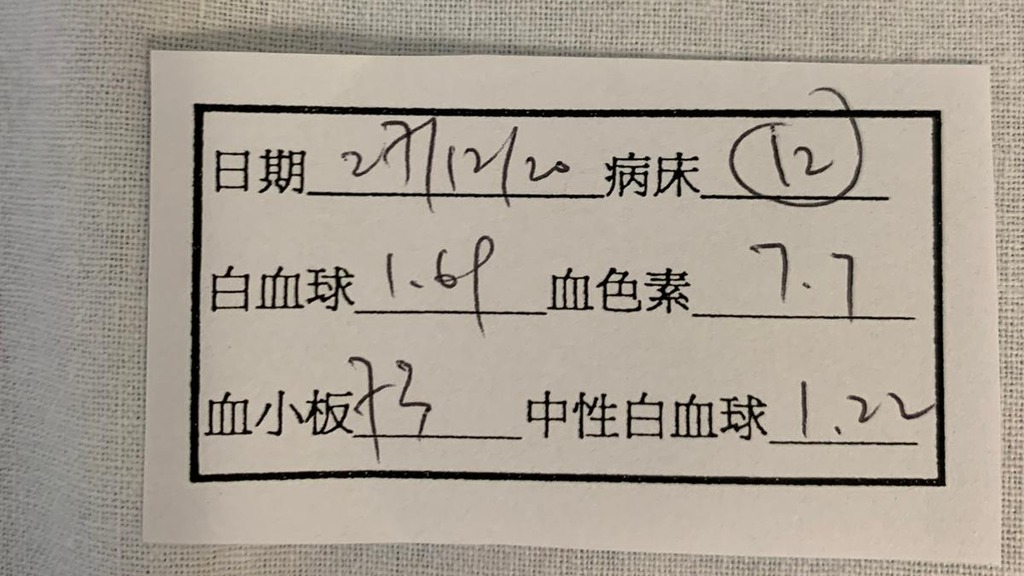 日期 27/12/20 病床 12
白血球 1.69 血色素 7.7
血小板 73 中性白血球 1.22